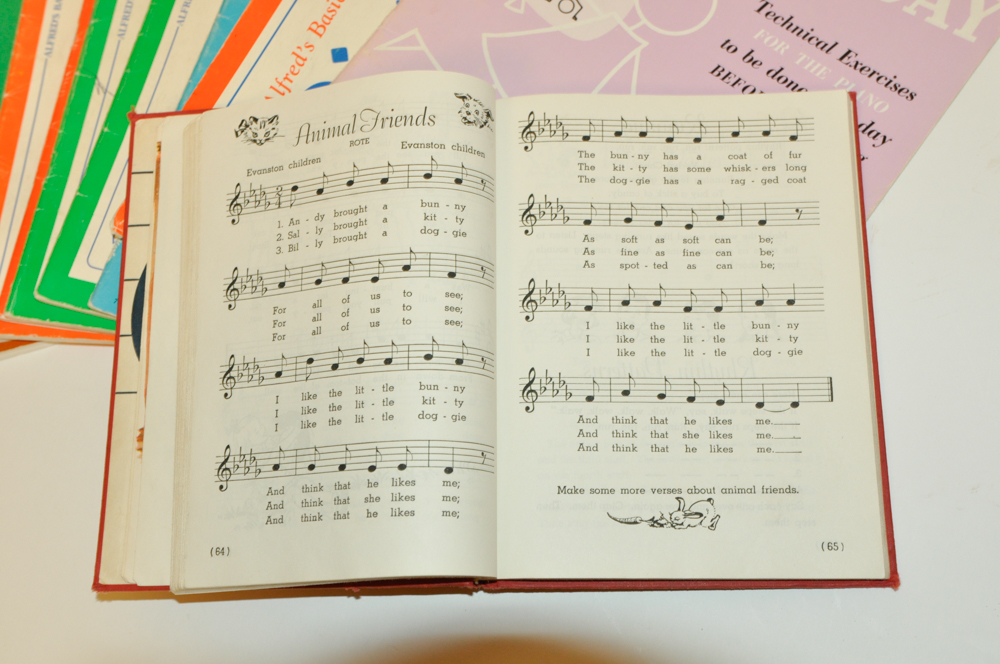 ALFRED'S BA
ALFRED'S
ALFRED'S
Alfred's Basic
DAY
Technical Exercises
FOR THE PIANO
to be done
day
Animal Friends
ROTE
Evanston children
Evanston children
1. An - dy brought a bun - ny
2. Sal - ly brought a kit - ty
3. Bil - ly brought a dog - gie
For all of us to see;
For all of us to see;
For all of us to see;
I like the lit - tle bun - ny
I like the lit - tle kit - ty
I like the lit - tle dog - gie
And think that he likes me;
And think that she likes me;
And think that he likes me;
(64)
The bun - ny has a coat of fur
The kit - ty has some whisk - ers long
The dog - gie has a rag - ged coat
As soft as soft can be;
As fine as fine can be;
As spot - ted as can be;
I like the lit - tle bun - ny
I like the lit - tle kit - ty
I like the lit - tle dog - gie
And think that he likes me.
And think that she likes me.
And think that he likes me.
Make some more verses about animal friends.
(65)